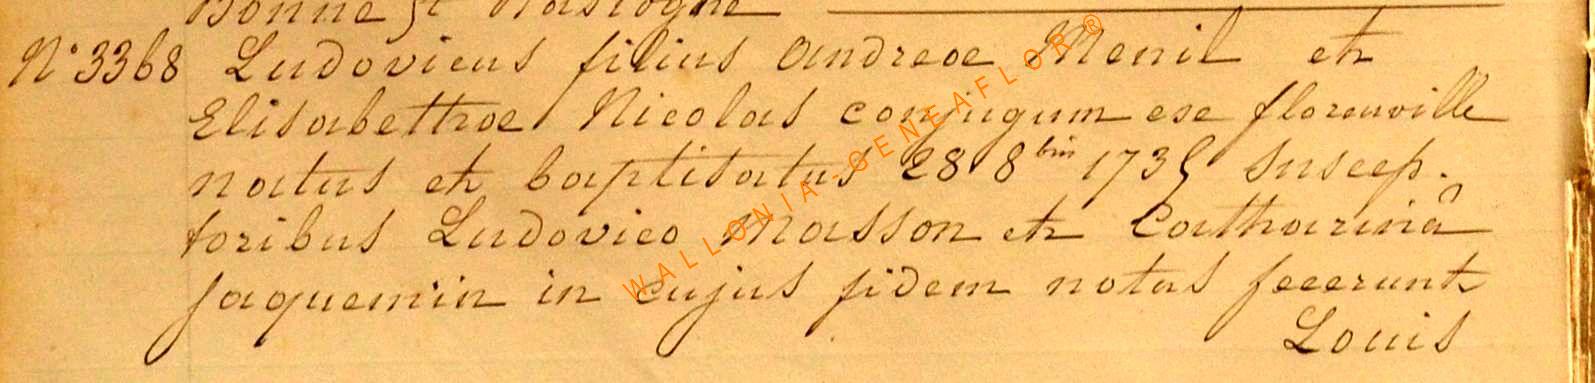 Bonne et Bastogne
N° 3368 Ludovicus filius Andreae Menil et
Elisabethae Nicolas conjugum ex florenville
natus et baptisatus 28 8bris 1735 suscep-
toribus Ludovico Masson et Catharinâ
Jaquemin in cujus fidem notas fecerunt
Louis
WALLONIA-GENEAFLOR®